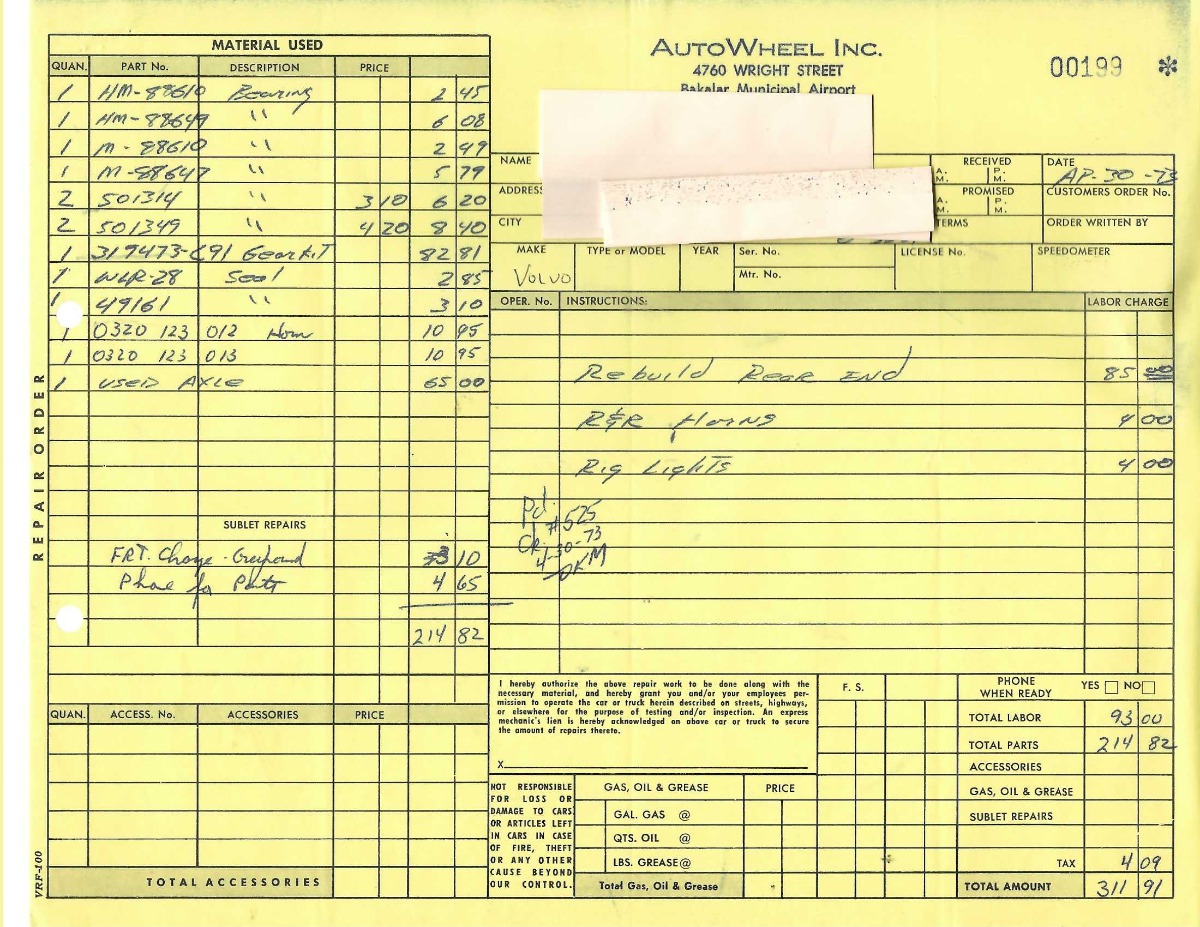 AUTOWHEEL INC.
4760 WRIGHT STREET
Bakalar Municipal Airport
00199 *
MATERIAL USED
QUAN. PART No. DESCRIPTION PRICE
1 HM-88610 Bearing 2 45
1 HM-88649 " 6 08
1 M-88610 " 2 49
1 M-88647 " 5 79
2 501314 " 3 10 6 20
2 501349 " 4 20 8 40
1 319473-C91 Gear KiT 82 81
1 WLR-28 Seal 2 85
1 49161 " 3 10
1 0320 123 012 Horn 10 95
1 0320 123 013 10 95
1 USED AXLE 65 00
REPAIR ORDER
SUBLET REPAIRS
FRT. Charge - Greyhound 3 10
Phone for Parts 4 65
214 82
QUAN. ACCESS. No. ACCESSORIES PRICE
TOTAL ACCESSORIES
VRF-100
NAME RECEIVED A. M. P. M. DATE AP-30-73
ADDRESS PROMISED A. M. P. M. CUSTOMERS ORDER No.
CITY TERMS ORDER WRITTEN BY
MAKE TYPE or MODEL YEAR Ser. No. LICENSE No. SPEEDOMETER
Volvo Mtr. No.
OPER. No. INSTRUCTIONS: LABOR CHARGE
Rebuild Rear End 85 00
R&R Horns 4 00
Rig Lights 4 00
Pd.
#525
Ck.
4-30-73
DKM
I hereby authorize the above repair work to be done along with the
necessary material, and hereby grant you and/or your employees per-
mission to operate the car or truck herein described on streets, highways,
or elsewhere for the purpose of testing and/or inspection. An express
mechanic's lien is hereby acknowledged on above car or truck to secure
the amount of repairs thereto.
X
NOT RESPONSIBLE
FOR LOSS OR
DAMAGE TO CARS
OR ARTICLES LEFT
IN CARS IN CASE
OF FIRE, THEFT
OR ANY OTHER
CAUSE BEYOND
OUR CONTROL.
GAS, OIL & GREASE PRICE
GAL. GAS @
QTS. OIL @
LBS. GREASE @
Total Gas, Oil & Grease
F. S.
PHONE WHEN READY YES NO
TOTAL LABOR 93 00
TOTAL PARTS 214 82
ACCESSORIES
GAS, OIL & GREASE
SUBLET REPAIRS
TAX 4 09
TOTAL AMOUNT 311 91